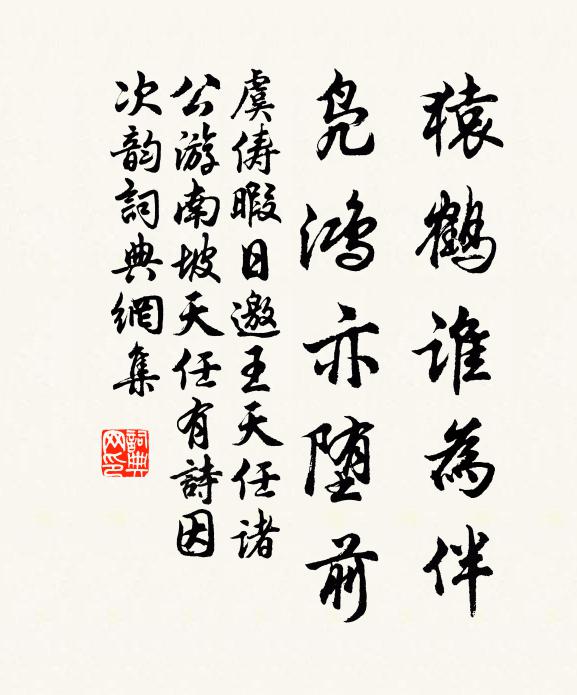 猿鹤谁為伴
凫鸿亦堕前
虞俦暇日邀王天任诸
公游南坡天任有詩因
次韵詞典網集
詞典网印